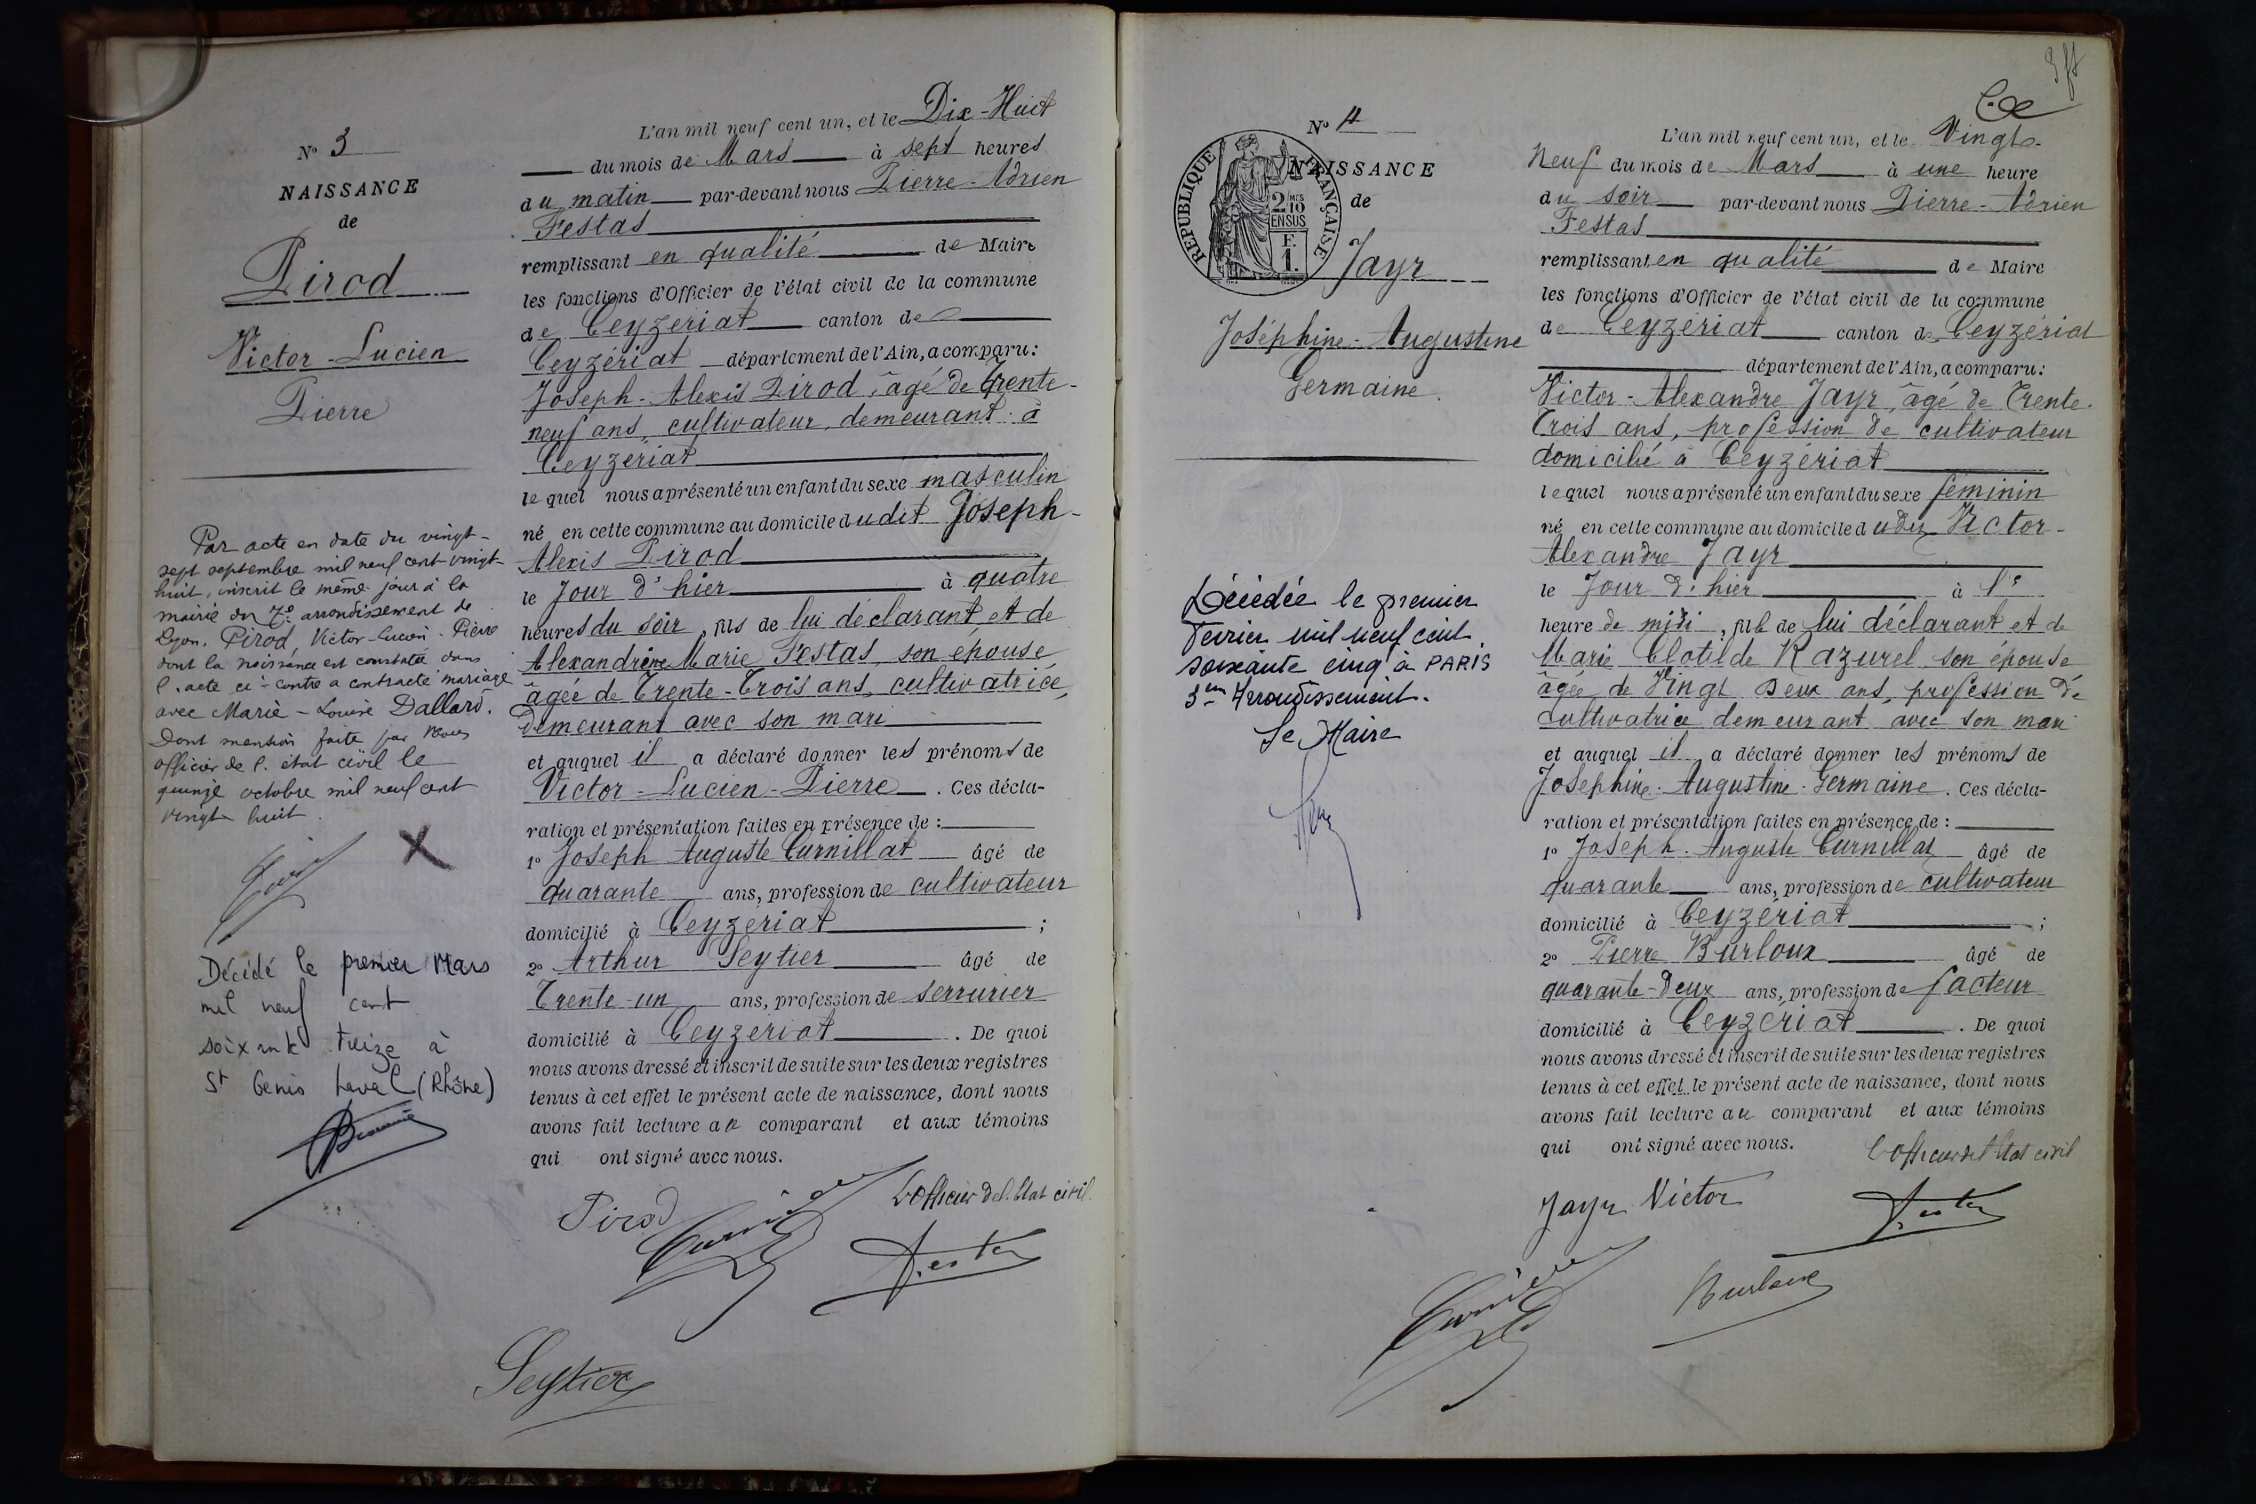 N° 3
NAISSANCE
de
Pirod
Victor-Lucien
Pierre
Par acte en date du vingt-
sept septembre mil neuf cent vingt-
huit, inscrit le même jour à la
mairie du 7e arrondissement de
Lyon. Pirod, Victor-Lucien-Pierre
dont la naissance est constatée dans
l'acte ci-contre a contracté mariage
avec Marie-Louise Dallard.
Dont mention faite par Nous
officier de l'état civil le
quinze octobre mil neuf cent
vingt huit.
X
Décédé le premier Mars
mil neuf cent
soixante treize à
St Genis Laval (Rhône)
L'an mil neuf cent un, et le Dix-Huit
du mois de Mars à sept heures
du matin par-devant nous Pierre-Adrien
Festas
remplissant en qualité de Maire
les fonctions d'Officier de l'état civil de la commune
de Ceyzeriat canton de
Ceyzériat département de l'Ain, a comparu:
Joseph-Alexis Pirod, âgé de Trente-
neuf ans, cultivateur, demeurant à
Ceyzeriat
lequel nous a présenté un enfant du sexe masculin
né en cette commune au domicile dudit Joseph-
Alexis Pirod
le Jour d'hier à quatre
heures du soir, fils de lui déclarant, et de
Alexandrine Marie Festas, son épouse
âgée de Trente-Trois ans, cultivatrice,
Demeurant avec son mari
et auquel il a déclaré donner les prénoms de
Victor-Lucien-Pierre. Ces décla-
ration et présentation faites en présence de:
1° Joseph Auguste Curnillat âgé de
quarante ans, profession de cultivateur
domicilié à Ceyzériat;
2° Arthur Seytier âgé de
Trente-un ans, profession de serrurier
domicilié à Ceyzeriat. De quoi
nous avons dressé et inscrit de suite sur les deux registres
tenus à cet effet le présent acte de naissance, dont nous
avons fait lecture au comparant et aux témoins
qui ont signé avec nous.
L'officier de l'Etat civil
Pirod
Festas
Seytier
N° 4
NAISSANCE
de
REPUBLIQUE FRANÇAISE
2/10
EN SUS
F.
1.
Jayr
Joséphine-Augustine
Germaine.
Décédée le premier
Fevrier mil neuf cent
soixante cinq à PARIS
3em Arrondissement.
Le Maire
L'an mil neuf cent un, et le Vingt-
Neuf du mois de Mars à une heure
du soir par-devant nous Pierre-Adrien
Festas
remplissant en qualité de Maire
les fonctions d'Officier de l'état civil de la commune
de Ceyzériat canton de Ceyzériat
département de l'Ain, a comparu:
Victor-Alexandre Jayr, âgé de Trente-
Trois ans, profession de cultivateur
domicilié à Ceyzériat
lequel nous a présenté un enfant du sexe féminin
né en cette commune au domicile dudit Victor-
Alexandre Jayr
le Jour d'hier à l'
heure de midi, fils de lui déclarant et de
Marie Clotilde Razurel son épouse
âgée de Vingt Deux ans, profession de
cultivatrice demeurant avec son mari
et auquel il a déclaré donner les prénoms de
Joséphine-Augustine-Germaine. Ces décla-
ration et présentation faites en présence de:
1° Joseph-Auguste Curnillat âgé de
quarante ans, profession de cultivateur
domicilié à Ceyzériat;
2° Pierre Burloux âgé de
quarante-Deux ans, profession de facteur
domicilié à Ceyzériat. De quoi
nous avons dressé et inscrit de suite sur les deux registres
tenus à cet effet le présent acte de naissance, dont nous
avons fait lecture au comparant et aux témoins
qui ont signé avec nous.
L'officier de l'Etat civil
Jayr Victor
Festas
Burloux